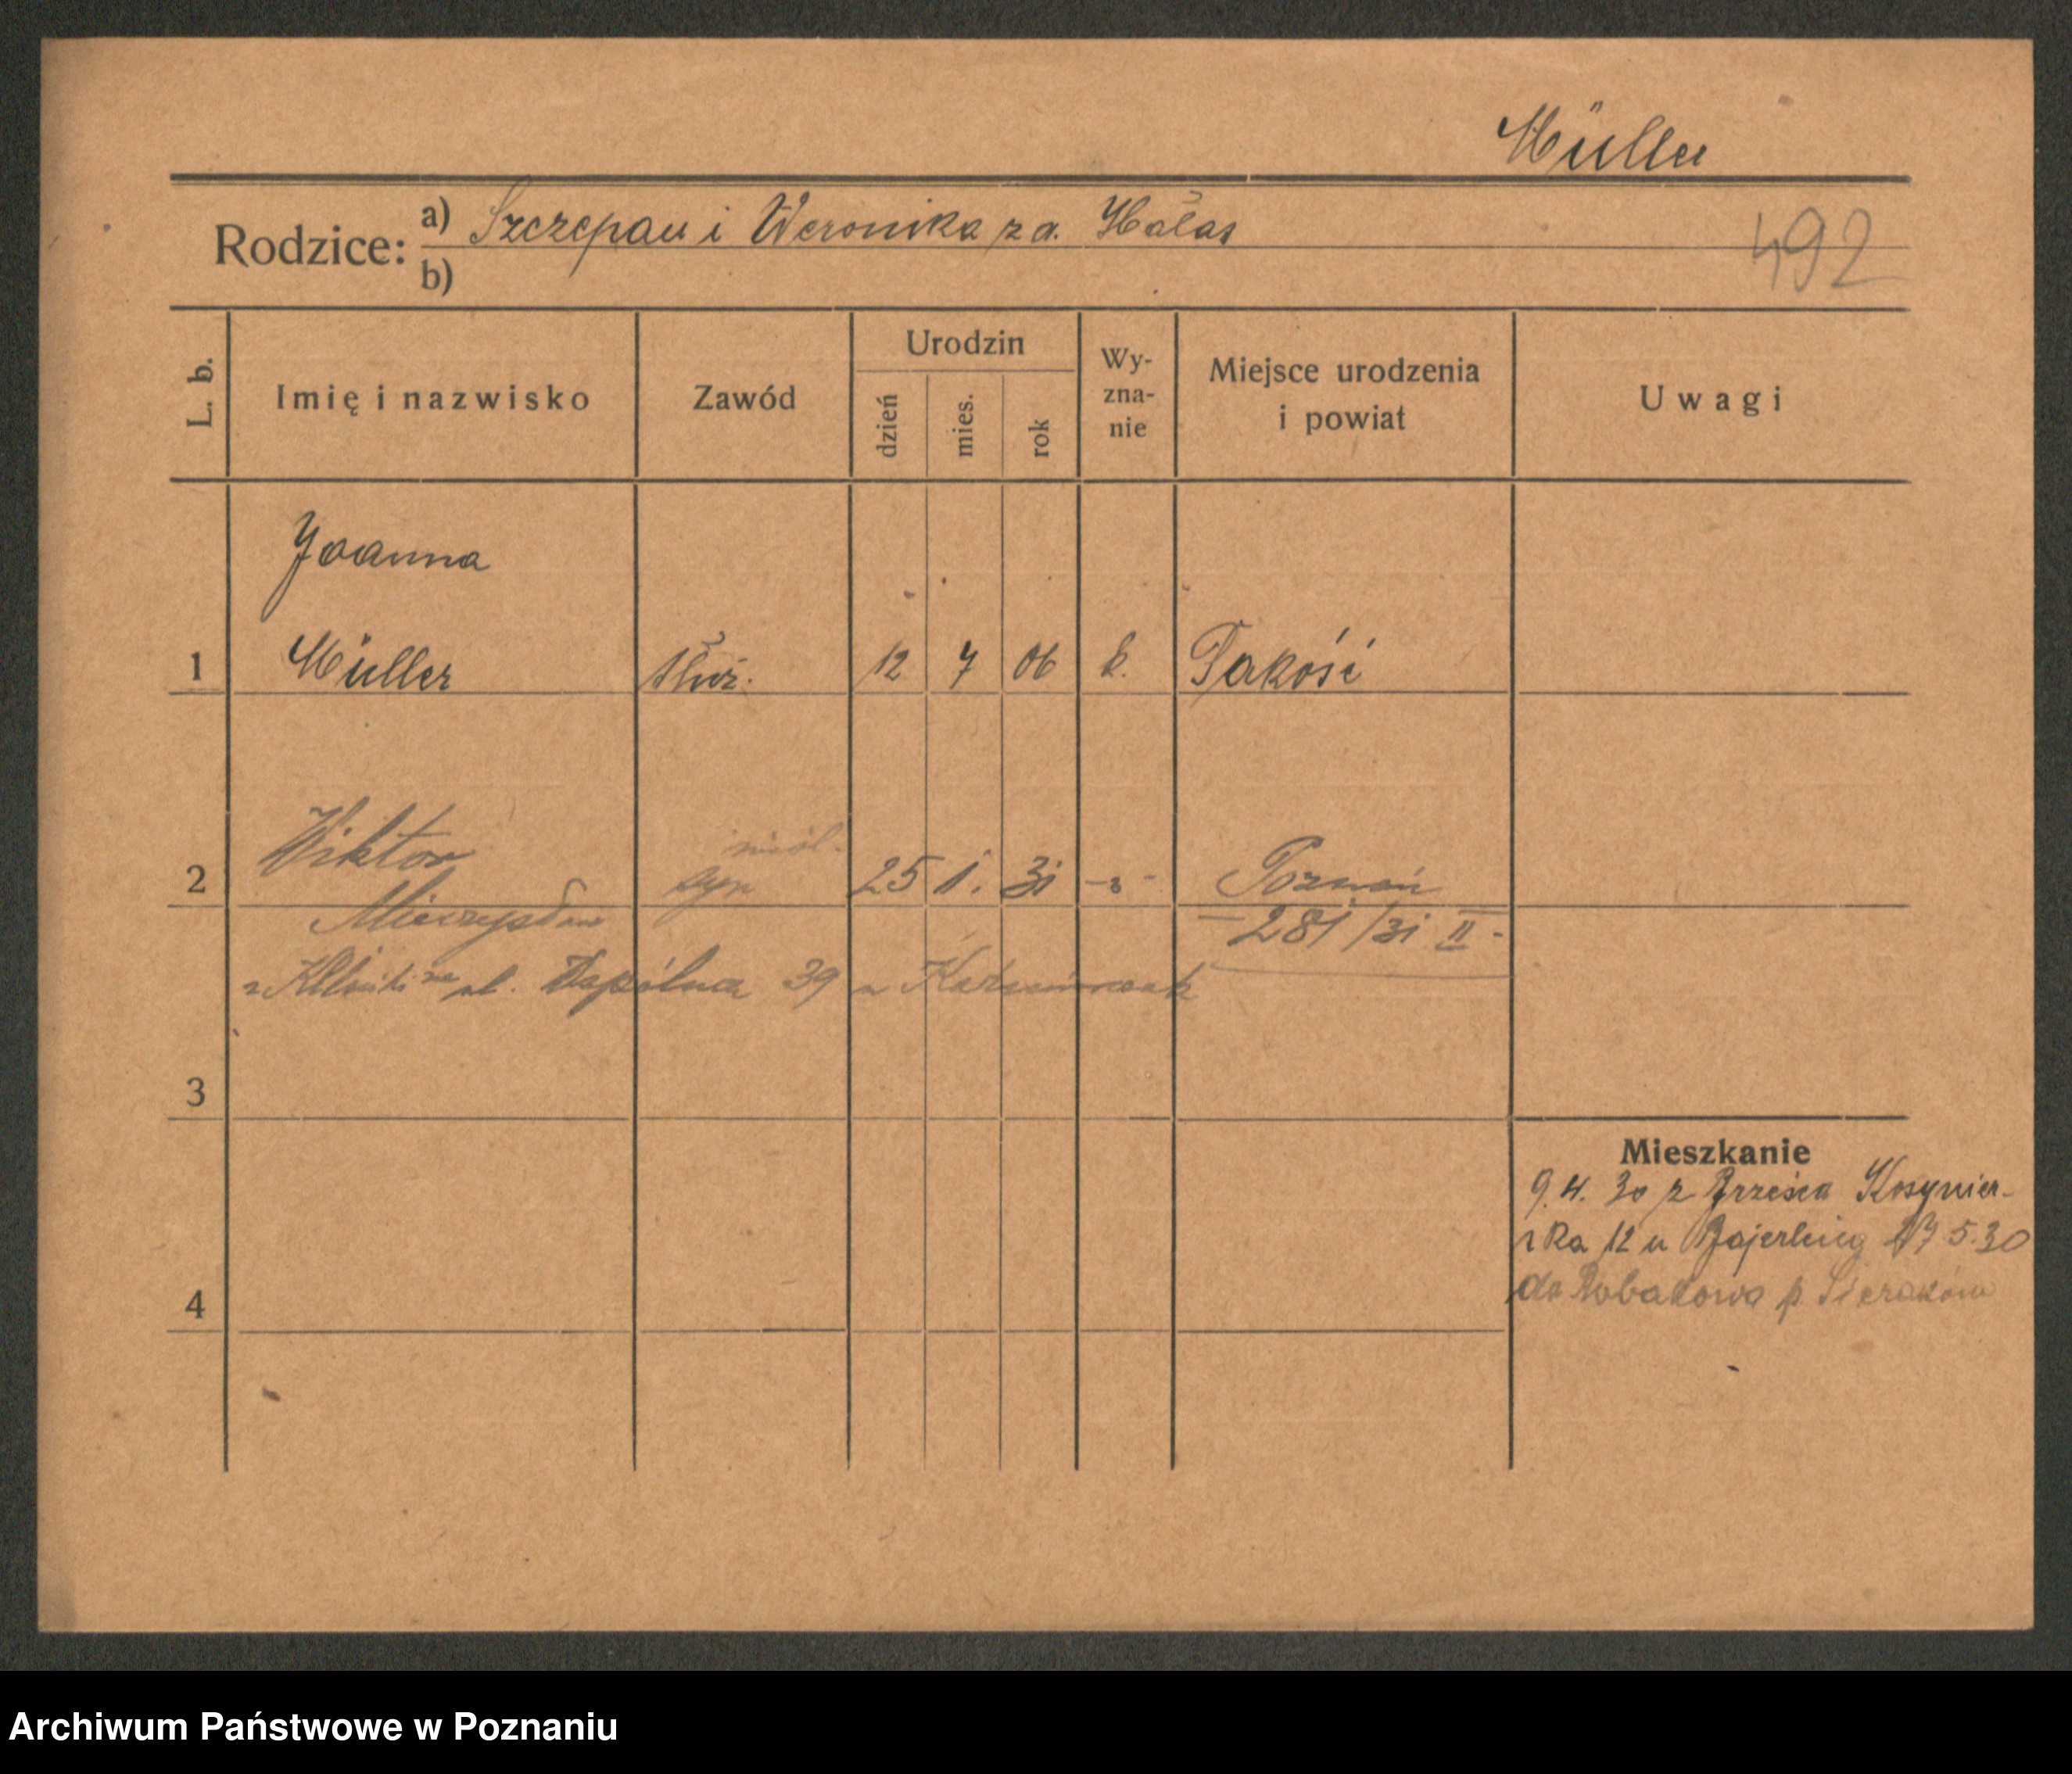 Müller
Rodzice: a) Szczepan i Weronika z d. Hałas
492
b)
L. b.
Imię i nazwisko
Zawód
Urodzin
dzień
mies.
rok
Wy-
zna-
nie
Miejsce urodzenia
i powiat
Uwagi
Joanna
1 Müller służ. 12 7 06 k. Pakość
Wiktor
nieśl.
2 syn 25 1. 31 Poznań
Mieczysław
281/31 II -
ul. Wspólna 39 u Kaźmierczak
3
Mieszkanie
9.4. 30 z Brześcia Kosynier-
ska 12 u Bajerlein 17 5.30
do Robakowa p. Sieraków
4
Archiwum Państwowe w Poznaniu